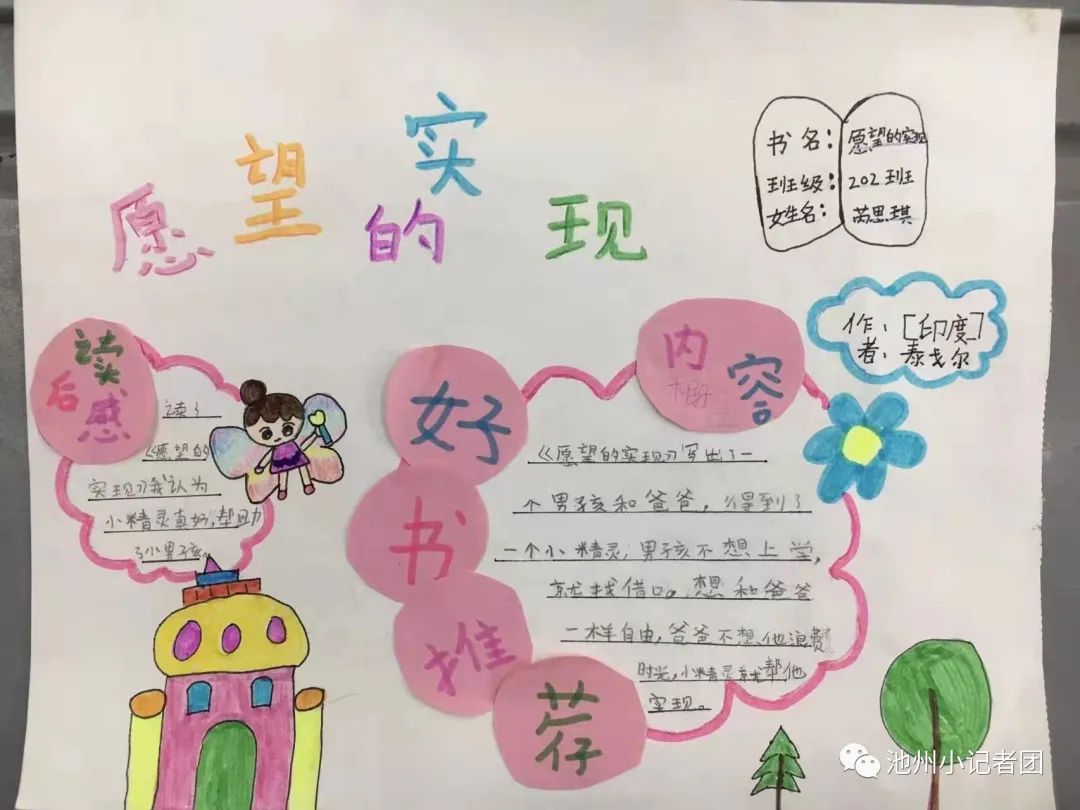 愿望的实现
书名：愿望的实现
班级：202班
姓名：芮思琪
作者：[印度]
泰戈尔
读后感
读了
《愿望的
实现》我认为
小精灵真好，帮助
了小男孩。
好书推荐
内容
《愿望的实现》写出了一
个男孩和爸爸，得到了
一个小精灵，男孩不想上学，
就找借口。想和爸爸
一样自由，爸爸不想他浪费
时光，小精灵就帮他
实现。
池州小记者团